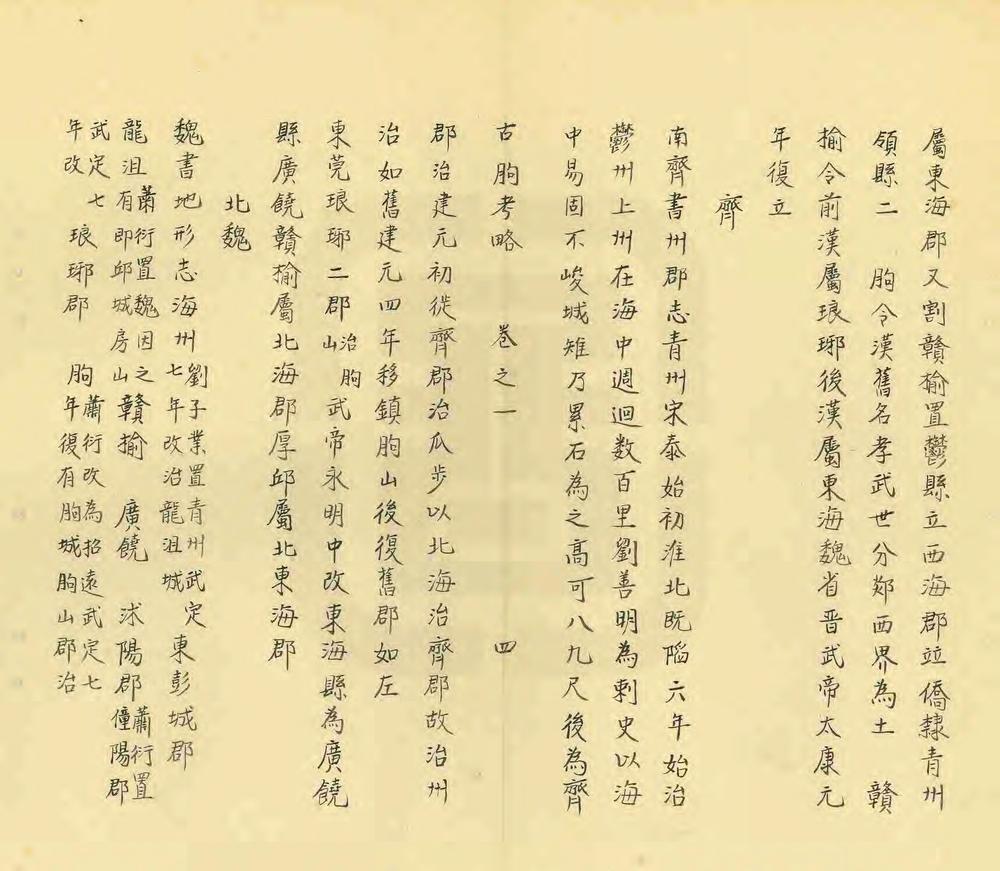 屬東海郡又割贛揄置鬱縣立西海郡竝僑隸青州
領縣二　朐令漢舊名孝武世分郯西界為土　贛
揄令前漢屬琅琊後漢屬東海魏省晋武帝太康元
年復立
齊
南齊書州郡志青州宋泰始初淮北既陷六年始治
鬱州上州在海中週迴数百里劉善明為剌史以海
中易固不峻城雉乃累石為之高可八九尺後為齊
古朐考略　卷之一　四
郡治建元初徙齊郡治瓜步以北海治齊郡故治州
治如舊建元四年移鎮朐山後復舊郡如左
東莞琅琊二郡治朐山武帝永明中改東海縣為廣饒
縣廣饒贛揄屬北海郡厚邱屬北東海郡
北魏
魏書地形志海州劉子業置青州武定七年改治龍沮城東彭城郡
龍沮蕭衍置魏因之有即邱城房山贛揄　廣饒　沭陽郡蕭衍置僮陽郡
武定七年改　琅琊郡　朐蕭衍改為招遠武定七年復有朐城朐山郡治